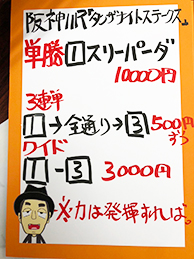 阪神11R『タンザナイトステークス』
単勝1スリーパーダ
10000円
3連単
1→全通り→3 500円ずつ
ワイド
1-3 3000円
力は発揮すれば。